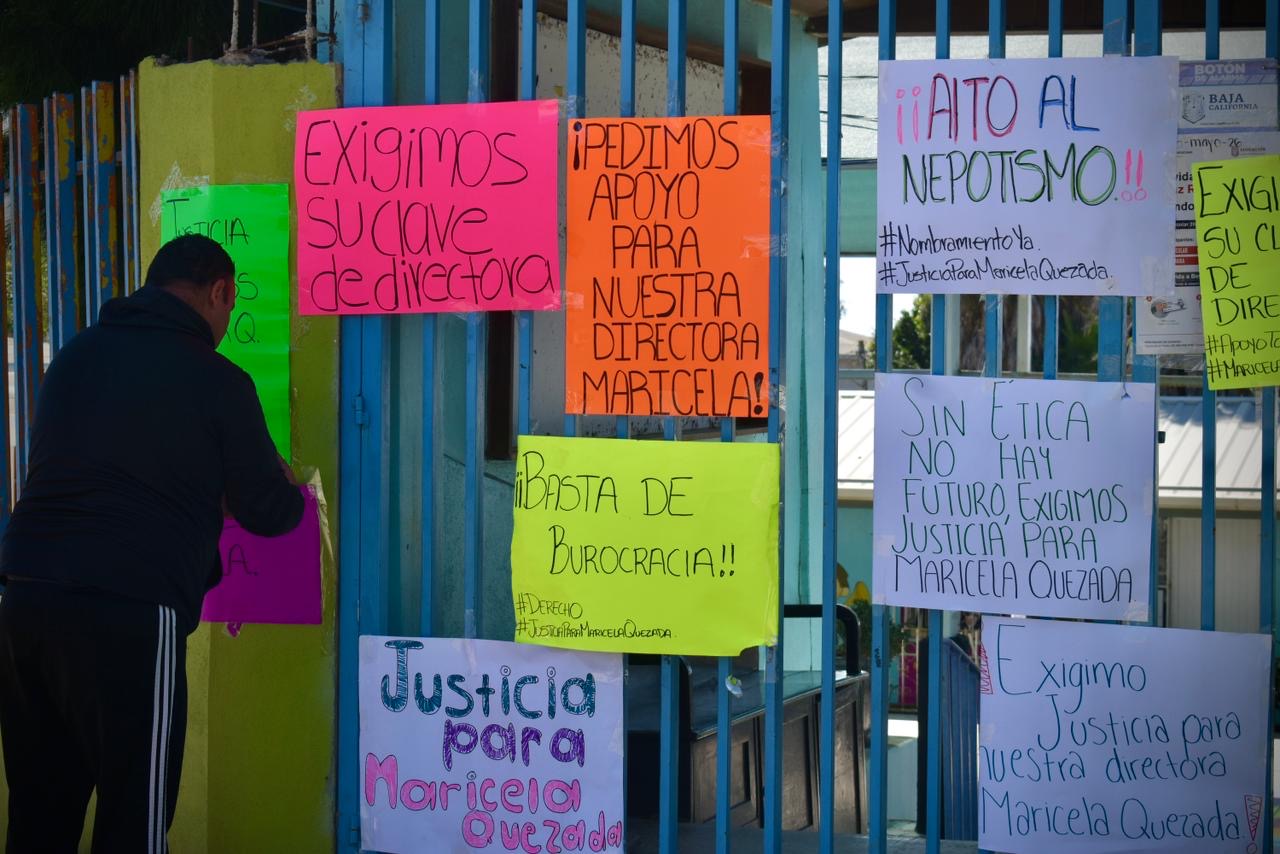 Justicia
Q.
A.
Exigimos
su clave
de directora
¡PEDIMOS
APOYO
PARA
NUESTRA
DIRECTORA
MARICELA!
¡¡BASTA DE
BUROCRACIA!!
#DERECHO
#JUSTICIAPARAMARICELAQUEZADA.
Justicia
para
Maricela
Quezada
¡¡AlTO AL
NEPOTISMO.!!
#NombramientoYa.
#JusticiaParaMaricelaQuezada.
SIN ÉTICA
NO HAY
FUTURO, EXIGIMOS
JUSTICIA PARA
MARICELA QUEZADA.
Exigimo
Justicia para
nuestra directora
Maricela Quezada!
BOTÓN
DE ALARMA
BAJA
CALIFORNIA
EXIGI
SU CL
DE
DIRE
#APOYOT
#MARICEL